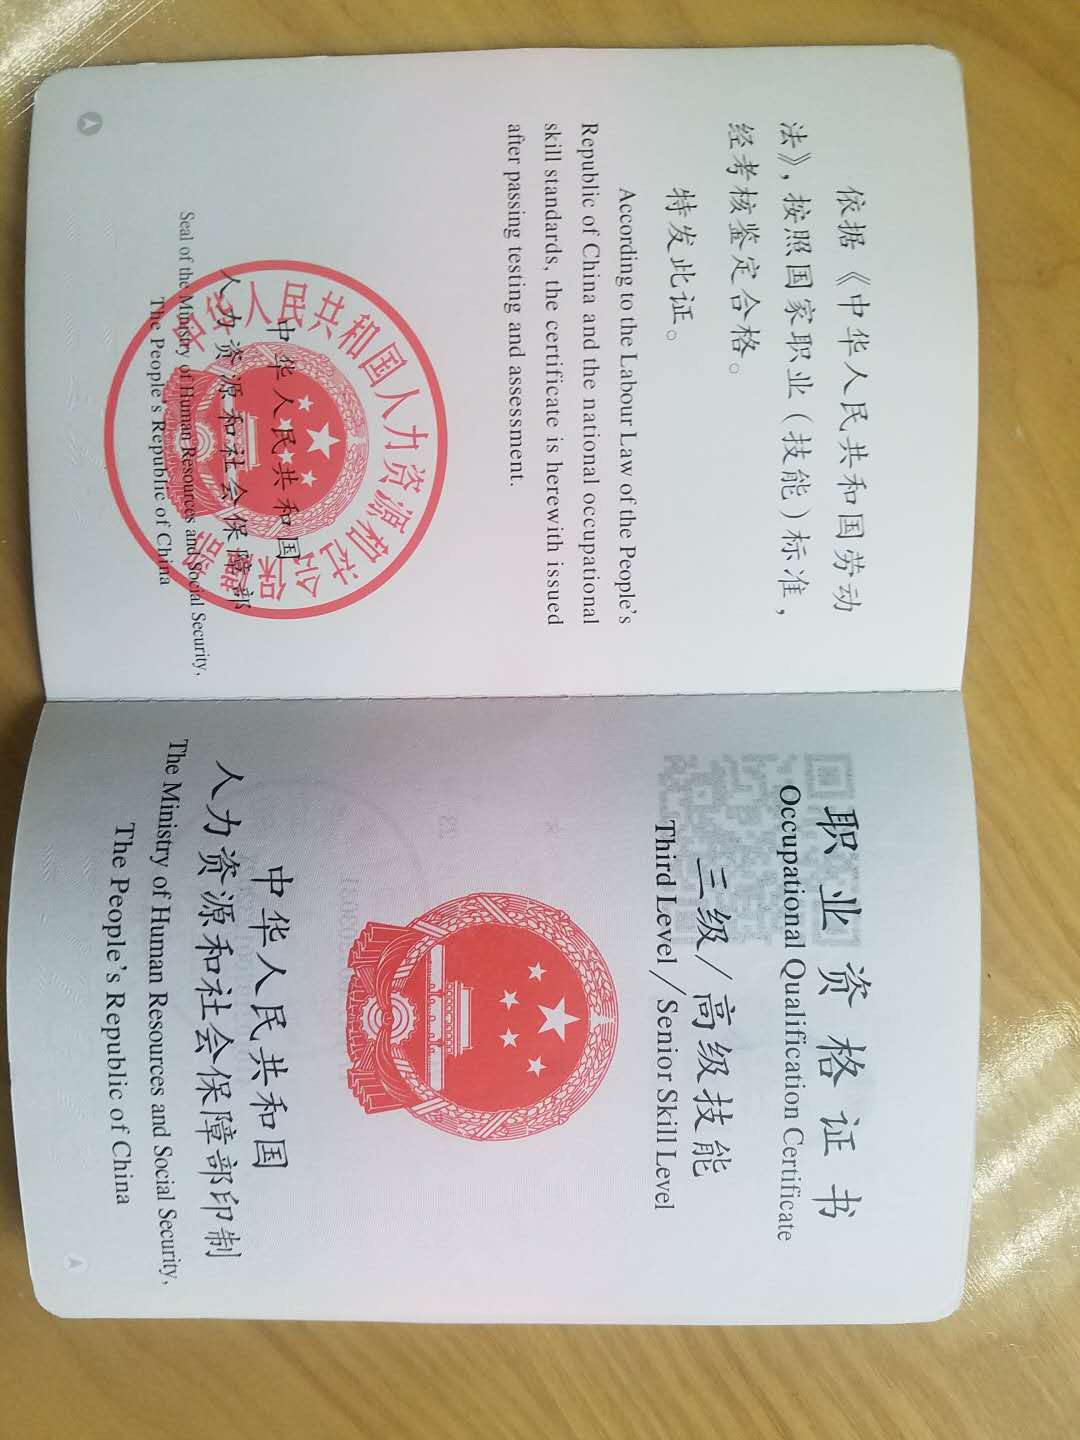 依据《中华人民共和国劳动
法》，按照国家职业（技能）标准，
经考核鉴定合格。
特发此证。
According to the Labour Law of the People's
Republic of China and the national occupational
skill standards, the certificate is herewith issued
after passing testing and assessment.
中华人民共和国人力资源和社会保障部
中华人民共和国
人力资源和社会保障部
Seal of the Ministry of Human Resources and Social Security,
The People's Republic of China
职业资格证书
Occupational Qualification Certificate
三级/高级技能
Third Level/Senior Skill Level
中华人民共和国
人力资源和社会保障部印制
The Ministry of Human Resources and Social Security,
The People's Republic of China